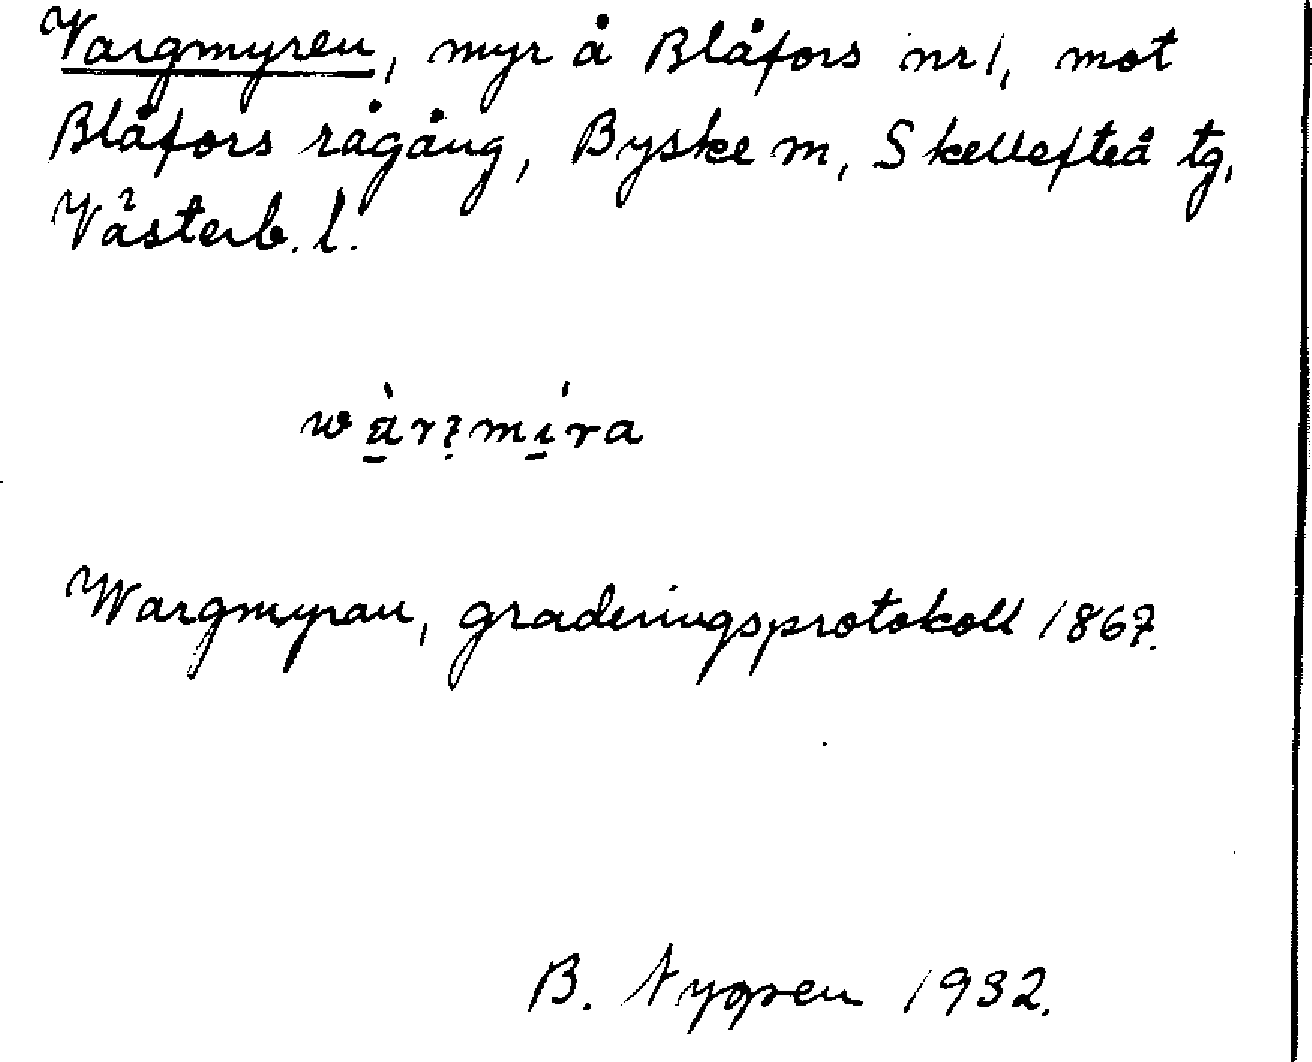 Vargmyren, myr å Blåfors nr 1, mot
Blåfors rågång, Byske m, Skellefteå tg,
Västerb. l.
Wargmyran, graderingsprotokoll 1867.
B. Nygren 1932.